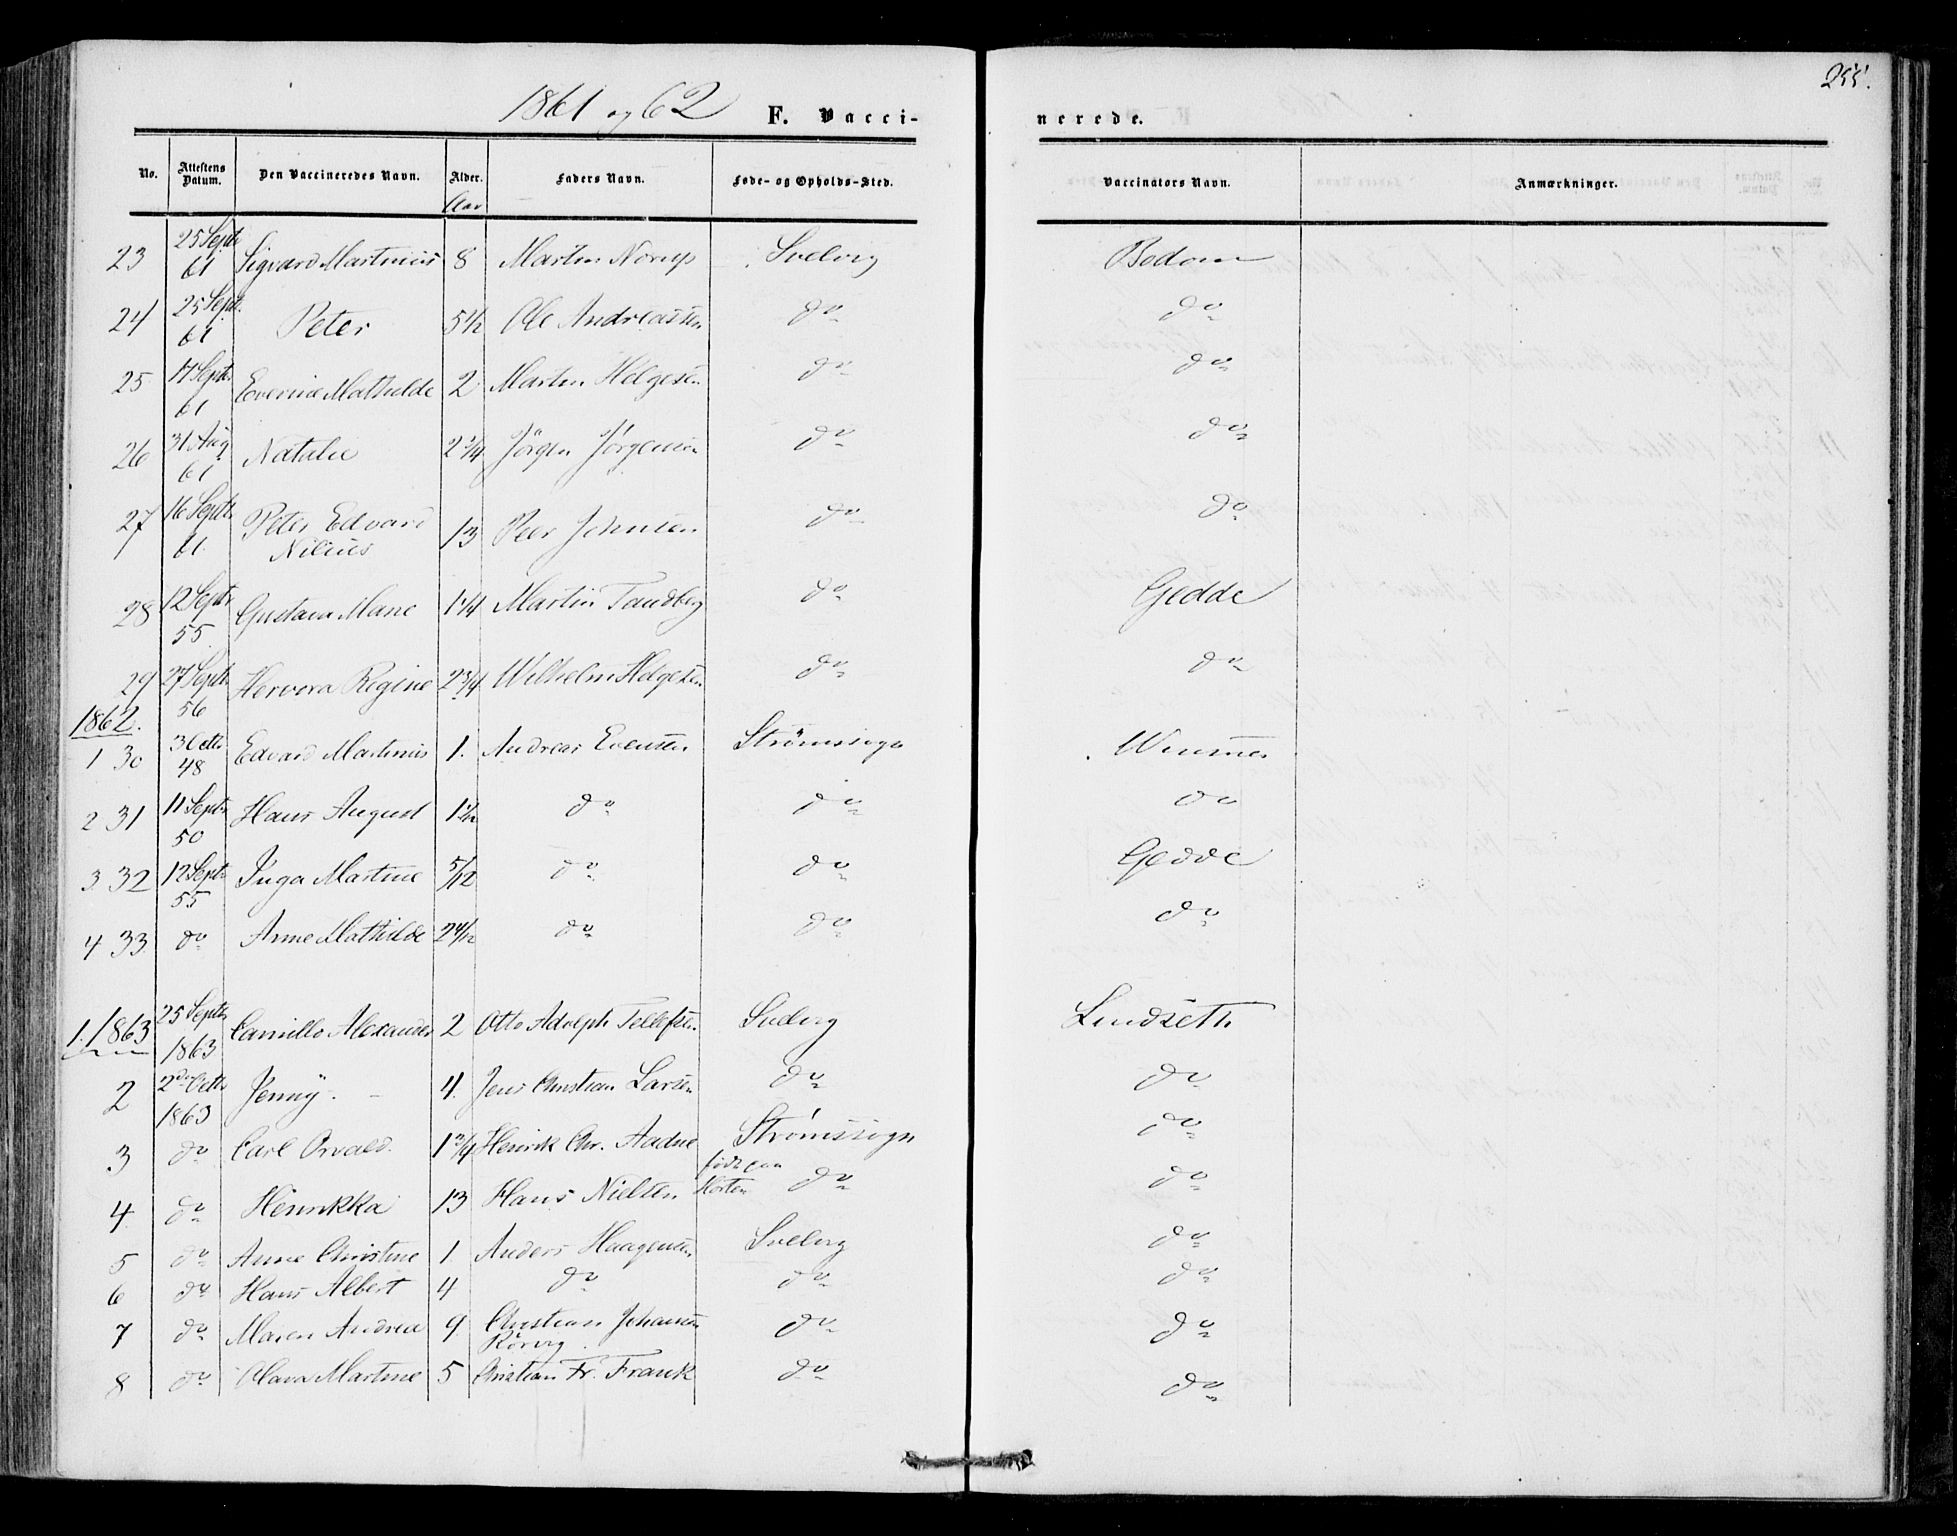 1861 og 62 F. Vacci-nerede. 255.
No. Attestens Datum. Den Vaccineredes Navn. Alder. Faders Navn. Føde- og Opholds-Sted. Vaccinators Navn. Anmærkninger.
Aar
23 25 Septr 61 Sigvard Martinius 8 Martin Norup Svelvig Bodom
24 25 Septr 61 Peter 5 1/2 Ole Andreassen do do
25 17 Septr 61 Everine Mathilde 2 Martin Helgesen do do
26 31 Aug 61 Natalie 2 1/4 Jörgen Jörgensen do do
27 16 Septr 61 Peter Edvard Nilius 13 Peer Johnsen do do
28 12 Septr 55 Gustava Marie 1 1/4 Martin Tandberg do Gedde
29 27 Septr 56 Hervora Regine 2 3/4 Wilhelm Helgesen do do
1862.
1 30 3 Octbr 48 Edvard Martinius 1. Andreas Evensen Strömssogn Wimmer
2 31 11 Septr 50 Hans August 1 1/12 do do do
3 32 12 Septr 55 Inga Martine 5/12 do do Gedde
4 33 do Anne Mathilde 2 4/12 do do do
1. 1863 25 Septbr 1863 Camillo Alexander 2 Otto Adolph Tellefsen Svelvig Lundseth
2 2den Octbr 1863 Jenny. 4. Jens Christian Larsen do do
3 do Carl Orvald. 1 3/4 Henrik Chr. Aadne Strømssogn do
4 do Henrikka 13 Hans Nielsen født paa Horten do do
5 do Anne Christine 1. Anders Haagensen Svelvig do
6 do Hans Albert 4 do do do
7 do Maren Andrea 9 Christian Johansen Rörvig. do do
8 do Olava Martine 5 Christian Fr. Frank do do